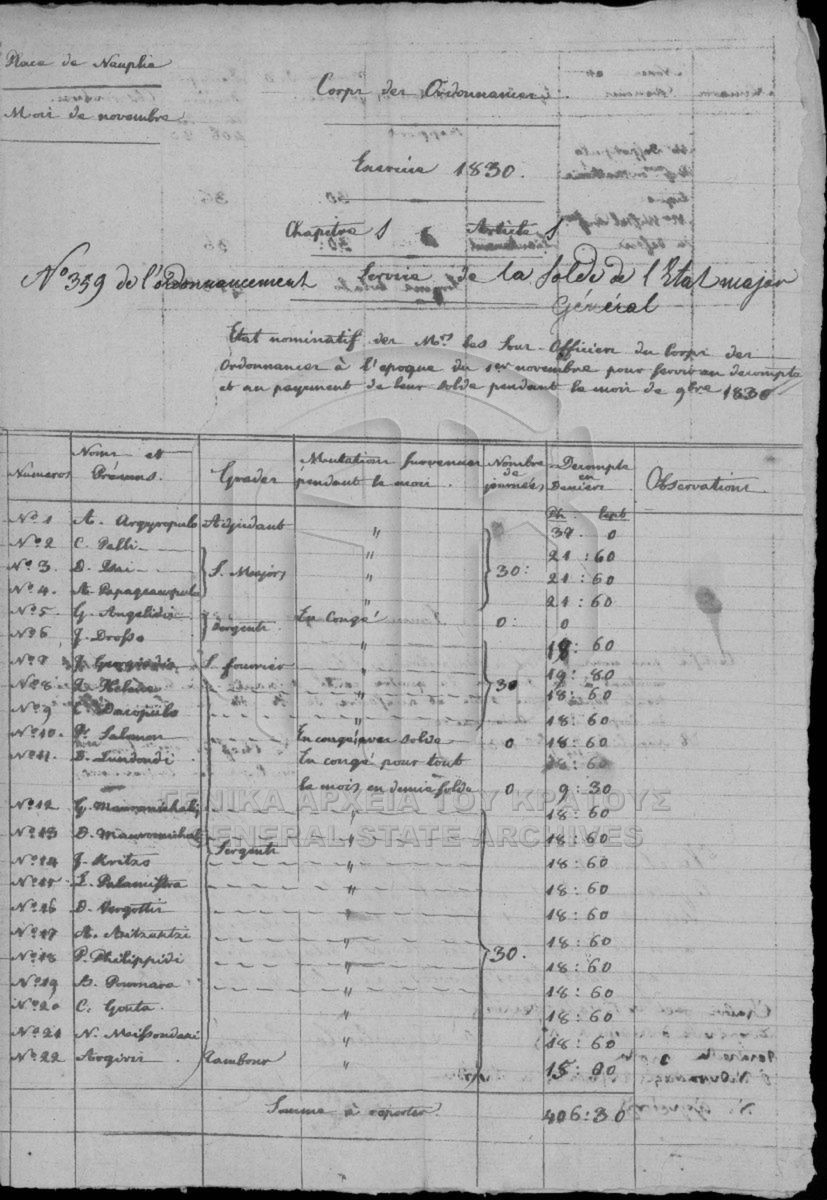 Place de Nauplie
Mois de novembre
Corps des Ordonnances
Exercice 1830.
Chapitre 1 Article 1
No 359 de l'ordonnancement
Service de la Solde de l'Etat major
Général
Etat nominatif des Mrs les Sous-Officiers du Corps des
Ordonnances à l'epoque du 1er novembre pour servir au decompte
et au payement de leur solde pendant le mois de 9bre 1830
Numeros Noms et Prénoms Grades Mutations survenues pendant le mois. Nombre de journées Decompte en Deniers Observations.
Ph. Lept
No 1 A. Argyropulo Adjudant " 37. 0
No 2 C. Palli " 21 : 60
No 3. D. S. Majors " 30: 21 : 60
No 4. A. " 21 : 60
No 5. G. Angelidis Sergents En Congé 0: 0
No 6. J. Drosso " 18 : 60
No 7 J. Georgiadis S. fourrier " 30 19 : 80
No 8. " 18 : 60
No 9 C. Dacopulo " 18 : 60
No 10. P. Salomon En congé avec solde 0 18 : 60
No 11. D. En congé pour tout
le mois, en demie solde 0 9 : 30
No 12 G. Mauromichali " 18 : 60
No 13 D. Mauromichali " 18 : 60
No 14 J. Kritzo Sergents " 18 : 60
No 15 Palamistra " 18 : 60
No 16 D. Vergotti " 18 : 60
No 17 A. " 30. 18 : 60
No 18 P. Philippidi " 18 : 60
No 19 " 18 : 60
No 20 C. Gouta " 18 : 60
No 21 N. " 18 : 60
No 22 Argiris Tambour " 15 : 00
Somme à reporter 406 : 30
ΓΕΝΙΚΑ ΑΡΧΕΙΑ ΤΟΥ ΚΡΑΤΟΥΣ
GENERAL STATE ARCHIVES